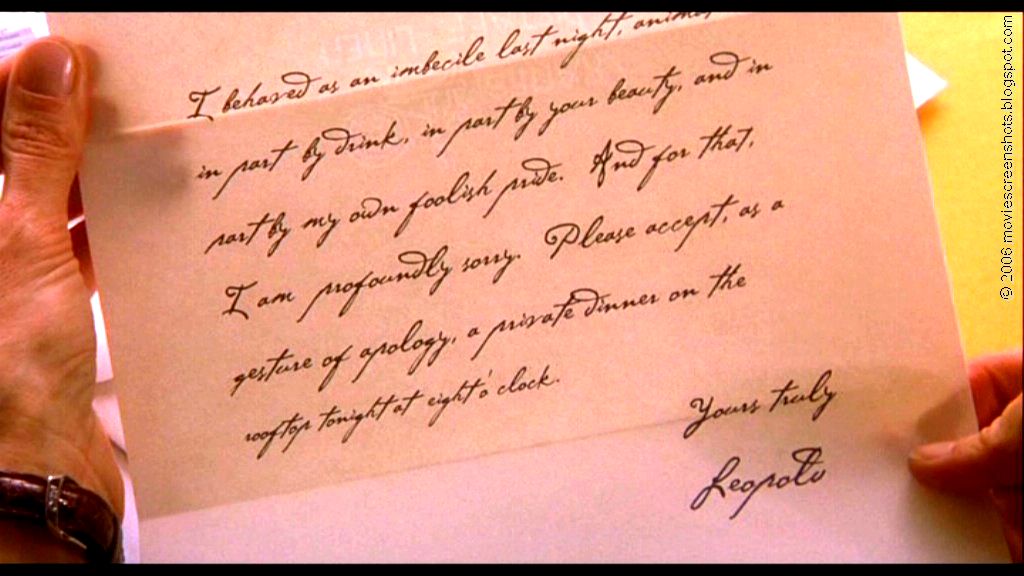 I behaved as an imbecile last night,
in part by drink, in part by your beauty, and in
part by my own foolish pride. And for that,
I am profoundly sorry. Please accept, as a
gesture of apology, a private dinner on the
rooftop tonight at eight o'clock.
Yours truly
Leopold
© 2006 moviescreenshots.blogspot.com